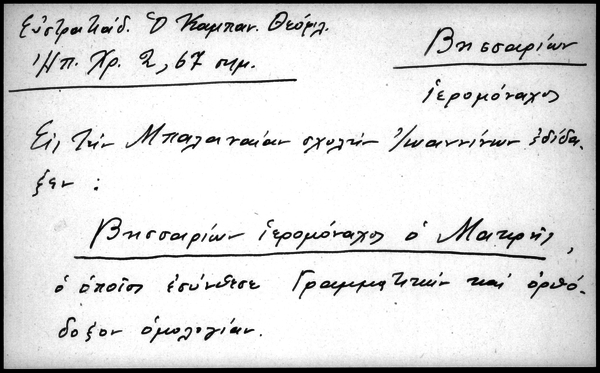 Εὐστρατιάδ. Ὁ Καμπαν. Θεόφιλ.
Ἠπ. Χρ. 2, 67 σημ.
Βησσαρίων
ἱερομόναχος
Εἰς τὴν Μπαλαναίαν σχολὴν Ἰωαννίνων ἐδίδα-
ξεν :
Βησσαρίων ἱερομόναχος ὁ Μακρῆς,
ὁ ὁποῖος ἐσύνθεσε Γραμματικὴν καὶ ὀρθό-
δοξον ὁμολογίαν.